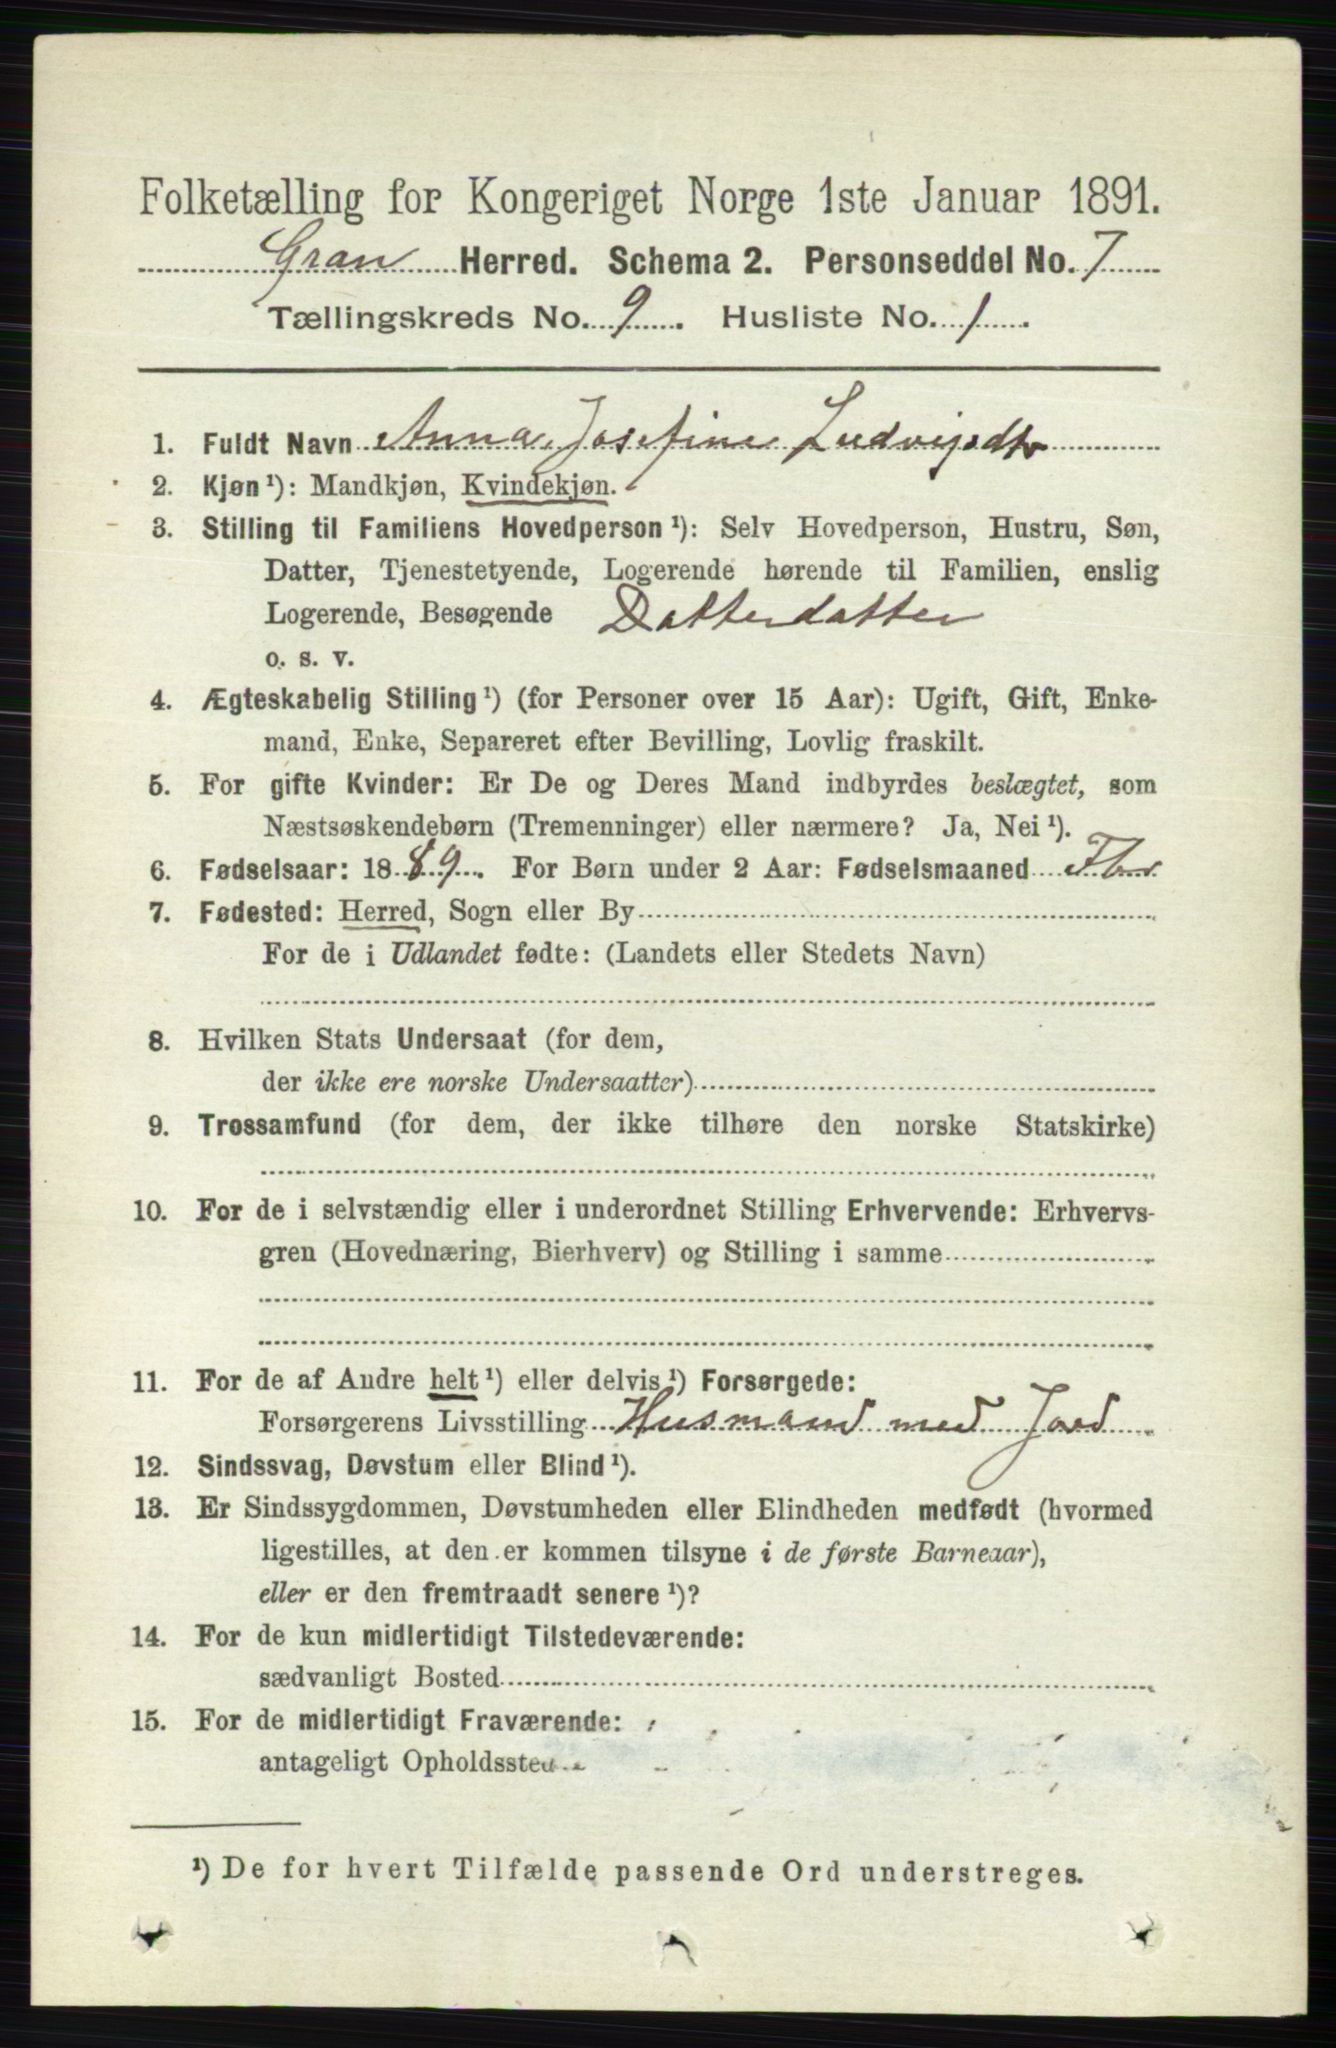 Folketælling for Kongeriget Norge 1ste Januar 1891.
Gran Herred. Schema 2. Personseddel No. 7
Tællingskreds No. 9. Husliste No. 1
1. Fuldt Navn Anna Josefine Ludvigsdtr
2. Kjøn¹): Mandkjøn, Kvindekjøn.
3. Stilling til Familiens Hovedperson¹): Selv Hovedperson, Hustru, Søn,
Datter, Tjenestetyende, Logerende hørende til Familien, enslig
Logerende, Besøgende Datterdatter
o. s. v.
4. Ægteskabelig Stilling¹) (for Personer over 15 Aar): Ugift, Gift, Enke-
mand, Enke, Separeret efter Bevilling, Lovlig fraskilt.
5. For gifte Kvinder: Er De og Deres Mand indbyrdes beslægtet, som
Næstsøskendebørn (Tremenninger) eller nærmere? Ja, Nei¹).
6. Fødselsaar: 1889. For Børn under 2 Aar: Fødselsmaaned
7. Fødested: Herred, Sogn eller By
For de i Udlandet fødte: (Landets eller Stedets Navn)
8. Hvilken Stats Undersaat (for dem,
der ikke ere norske Undersaatter)
9. Trossamfund (for dem, der ikke tilhøre den norske Statskirke)
10. For de i selvstændig eller i underordnet Stilling Erhvervende: Erhvervs-
gren (Hovednæring, Bierhverv) og Stilling i samme
11. For de af Andre helt¹) eller delvis¹) Forsørgede:
Forsørgerens Livsstilling Husmand med Jord
12. Sindssvag, Døvstum eller Blind¹).
13. Er Sindssygdommen, Døvstumheden eller Blindheden medfødt (hvormed
ligestilles, at den er kommen tilsyne i de første Barneaar),
eller er den fremtraadt senere¹)?
14. For de kun midlertidigt Tilstedeværende:
sædvanligt Bosted
15. For de midlertidigt Fraværende:
antageligt Opholdssted
¹) De for hvert Tilfælde passende Ord understreges.